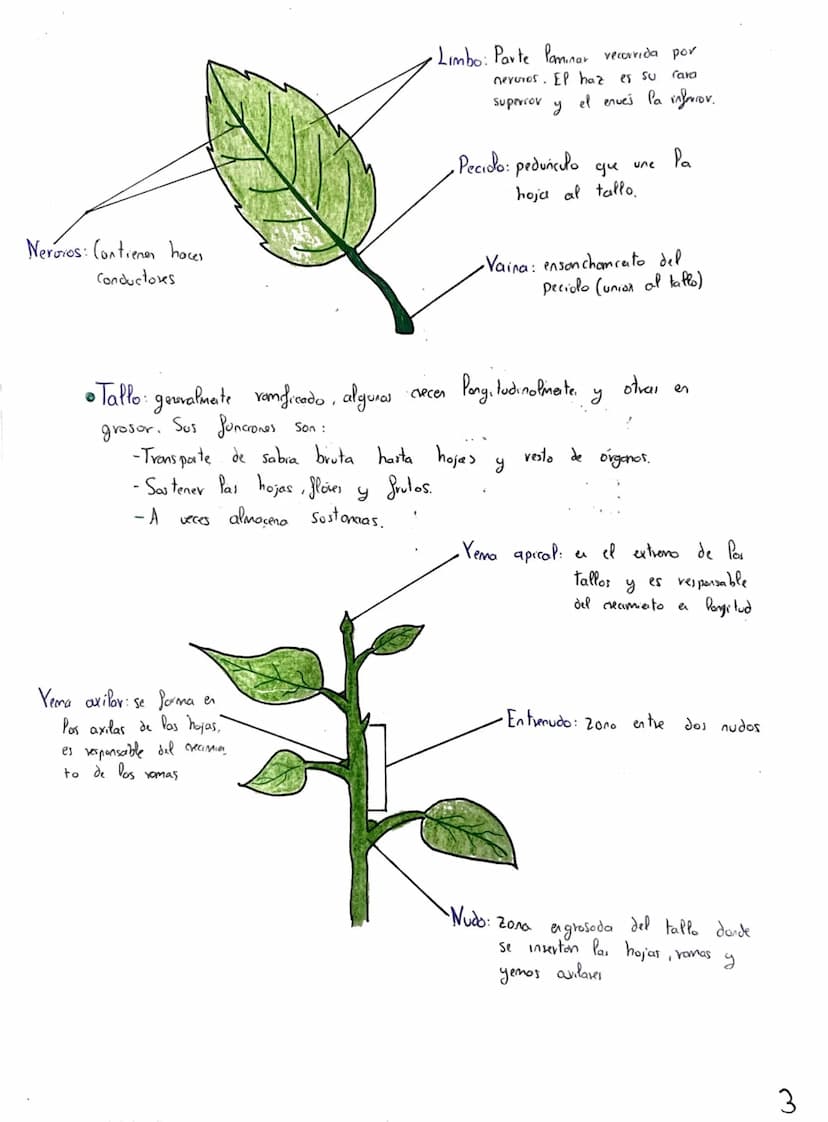 Limbo: Parte laminar recorrida por
nervios. El haz es su cara
superior y el envés la inferior.
Pecíolo: pedúnculo que une la
hoja al tallo.
Nervios: Contienen haces
conductores
Vaina: ensanchamiento del
peciolo (unión al tallo)
• Tallo: generalmente ramificado, algunas crecen longitudinalmente y otras en
grosor. Sus funciones son:
- Transporte de sabia bruta hasta hojas y resto de órganos.
- Sostener las hojas, flores y frutos.
- A veces almacena sustancias.
Yema apical: es el extremo de los
tallos y es responsable
del crecimiento en longitud
Yema axilar: se forma en
las axilas de las hojas,
es responsable del crecimien
to de las ramas
Entrenudo: zona entre dos nudos
Nudo: zona engrosada del tallo donde
se insertan las hojas, ramas y
yemas axilares
3